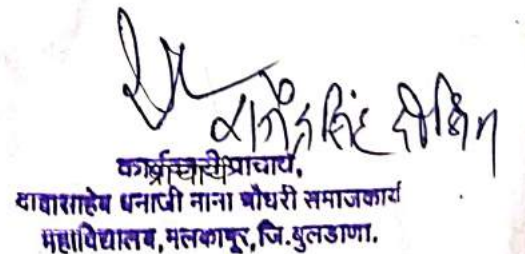 सिंह दीक्षित
कार्यकारी प्राचार्य,
दादासाहेब धनाजी नाना चौधरी समाजकार्य
महाविद्यालय, मलकापूर, जि.बुलडाणा.